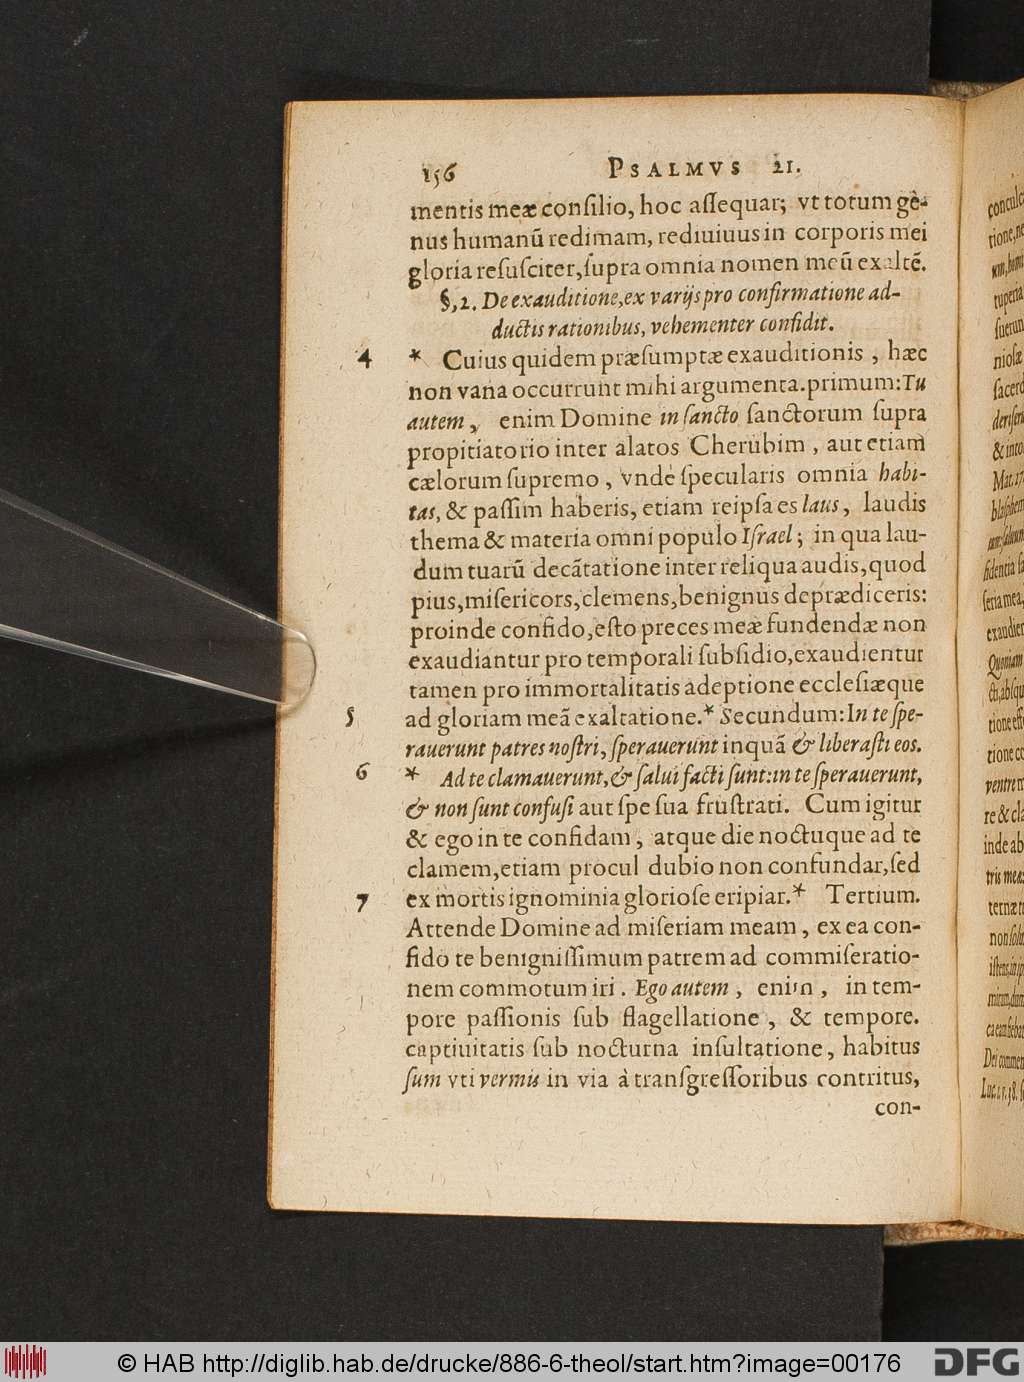 156 PSALMVS 21.
mentis meæ conſilio, hoc aſſequar; vt totum ge-
nus humanū redimam, rediuiuus in corporis mei
gloria reſuſciter, ſupra omnia nomen meū exaltē.
§, 2. De exauditione, ex varijs pro confirmatione ad-
ductis rationibus, vehementer confidit.
4 * Cuius quidem præſumptæ exauditionis, hæc
non vana occurrunt mihi argumenta. primum: Tu
autem, enim Domine in ſancto ſanctorum ſupra
propitiatorio inter alatos Cherubim, aut etiam
cælorum ſupremo, vnde ſpecularis omnia habi-
tas, & paſſim haberis, etiam reipſa es laus, laudis
thema & materia omni populo Iſrael; in qua lau-
dum tuarū decātatione inter reliqua audis, quod
pius, miſericors, clemens, benignus deprædiceris:
proinde confido, eſto preces meæ fundendæ non
exaudiantur pro temporali ſubſidio, exaudientur
tamen pro immortalitatis adeptione eccleſiæque
5 ad gloriam meā exaltatione.* Secundum: In te ſpe-
rauerunt patres noſtri, ſperauerunt inquā & liberaſti eos.
6 * Ad te clamauerunt, & ſalui facti ſunt: in te ſperauerunt,
& non ſunt confuſi aut ſpe ſua fruſtrati. Cum igitur
& ego in te confidam, atque die noctuque ad te
clamem, etiam procul dubio non confundar, ſed
7 ex mortis ignominia glorioſe eripiar.* Tertium.
Attende Domine ad miſeriam meam, ex ea con-
fido te benigniſſimum patrem ad commiſeratio-
nem commotum iri. Ego autem, enim, in tem-
pore paſſionis ſub flagellatione, & tempore.
captiuitatis ſub nocturna inſultatione, habitus
ſum vti vermis in via à tranſgreſſoribus contritus,
con-
© HAB http://diglib.hab.de/drucke/886-6-theol/start.htm?image=00176
DFG